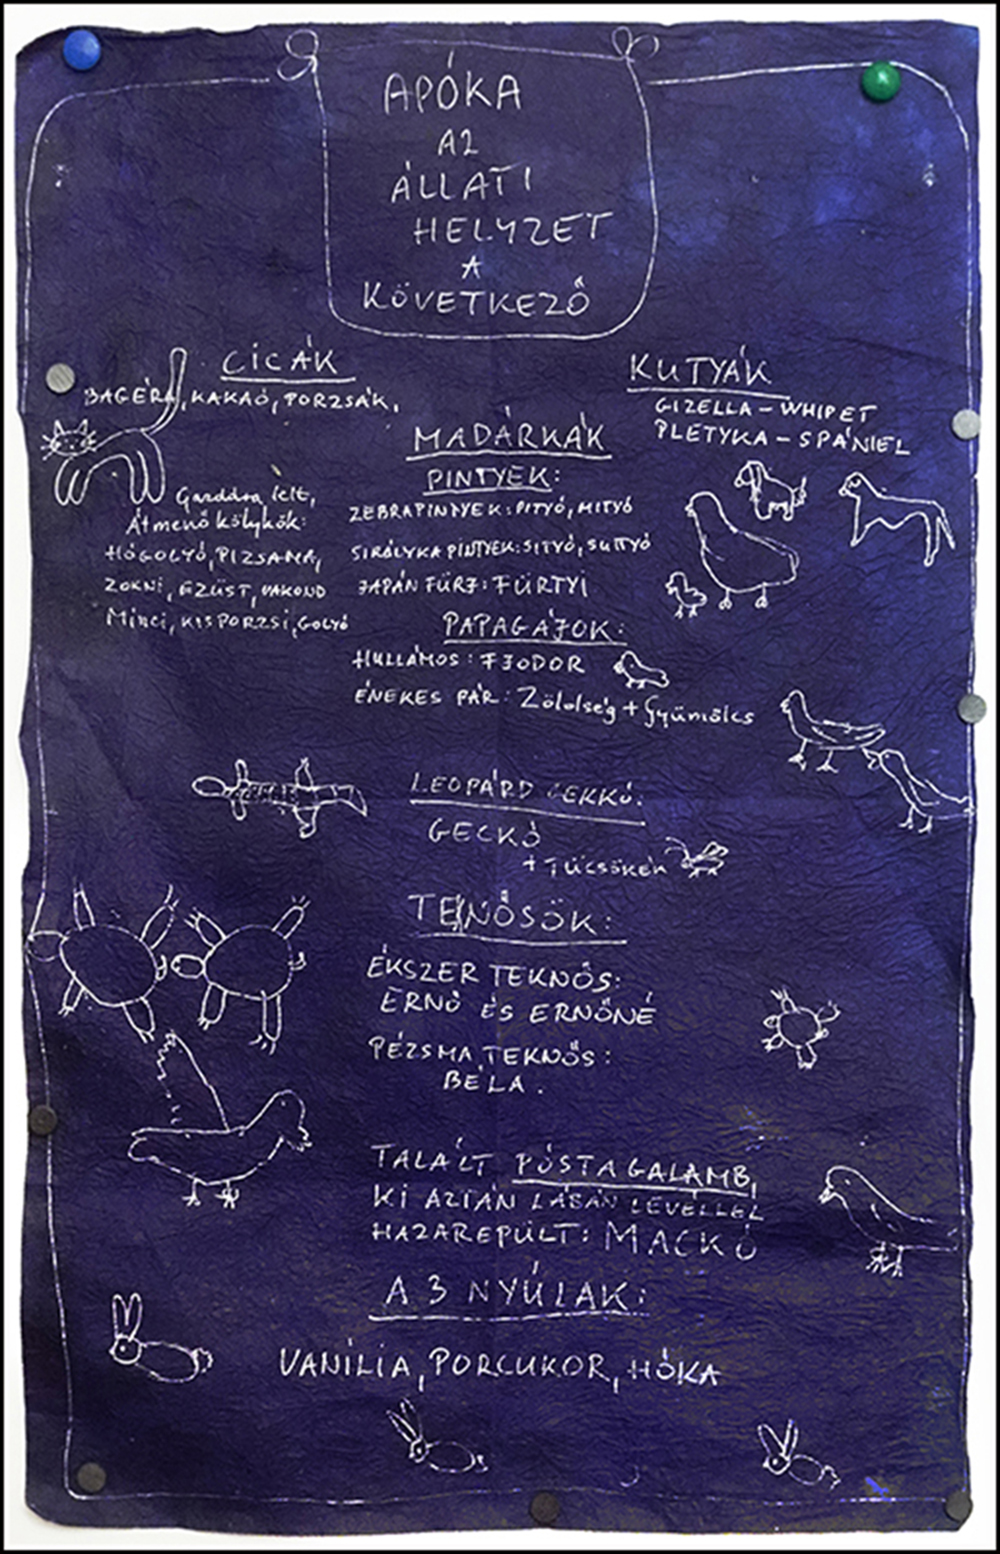 APÓKA
AZ
ÁLLATI
HELYZET
A
KÖVETKEZŐ
CICÁK
BAGÉRA, KAKAÓ, PORZSÁK,
Gazdára lelt,
Átmenő kölykök:
HÓGOLYÓ, PIZSAMA,
ZOKNI, EZÜST, VAKOND
Minci, KISPORZSI, GOLYÓ
KUTYÁK
GIZELLA – WHIPET
PLETYKA – SPÁNIEL
MADÁRKÁK
PINTYEK:
ZEBRAPINTYEK: PITYÓ, MITYÓ
SIRÁLYKA PINTYEK: SITYÓ, SUTYÓ
JAPÁN FÜRJ: FÜRTYI
PAPAGÁJOK:
HULLÁMOS: FJODOR
ÉNEKES PÁR: Zöldség + Gyümölcs
LEOPÁRD GEKKÓ:
GECKÓ
+ TÜCSÖKEK
TEKNŐSÖK:
ÉKSZER TEKNŐS:
ERNŐ ÉS ERNŐNÉ
PÉZSMA TEKNŐS:
BÉLA.
TALÁLT POSTAGALAMB,
KI AZTÁN LÁBÁN LEVÉLLEL
HAZAREPÜLT: MACKÓ
A 3 NYÚLAK:
VANÍLIA, PORCUKOR, HÓKA